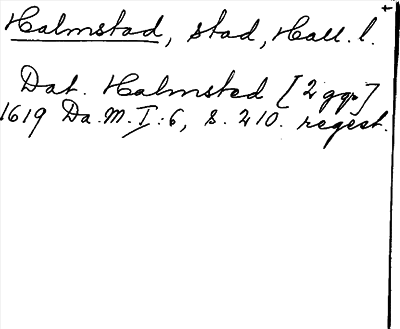 Halmstad, stad, Hall. l.
Dat. Halmsted [2 ggr]
1619 Da. M. I: 6, s. 210. regest.